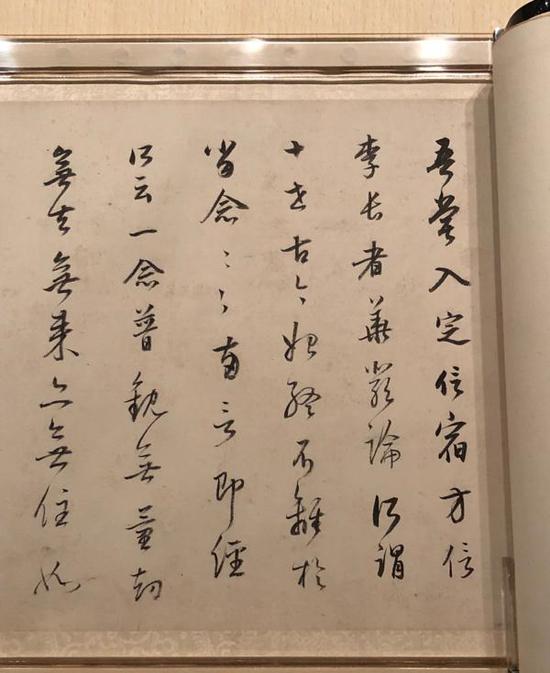 吾嘗入定信宿方信
李長者華嚴論所謂
十世古今始終不離於
當念〻〻兩言即經
所云一念普觀無量劫
無去無來亦無住如